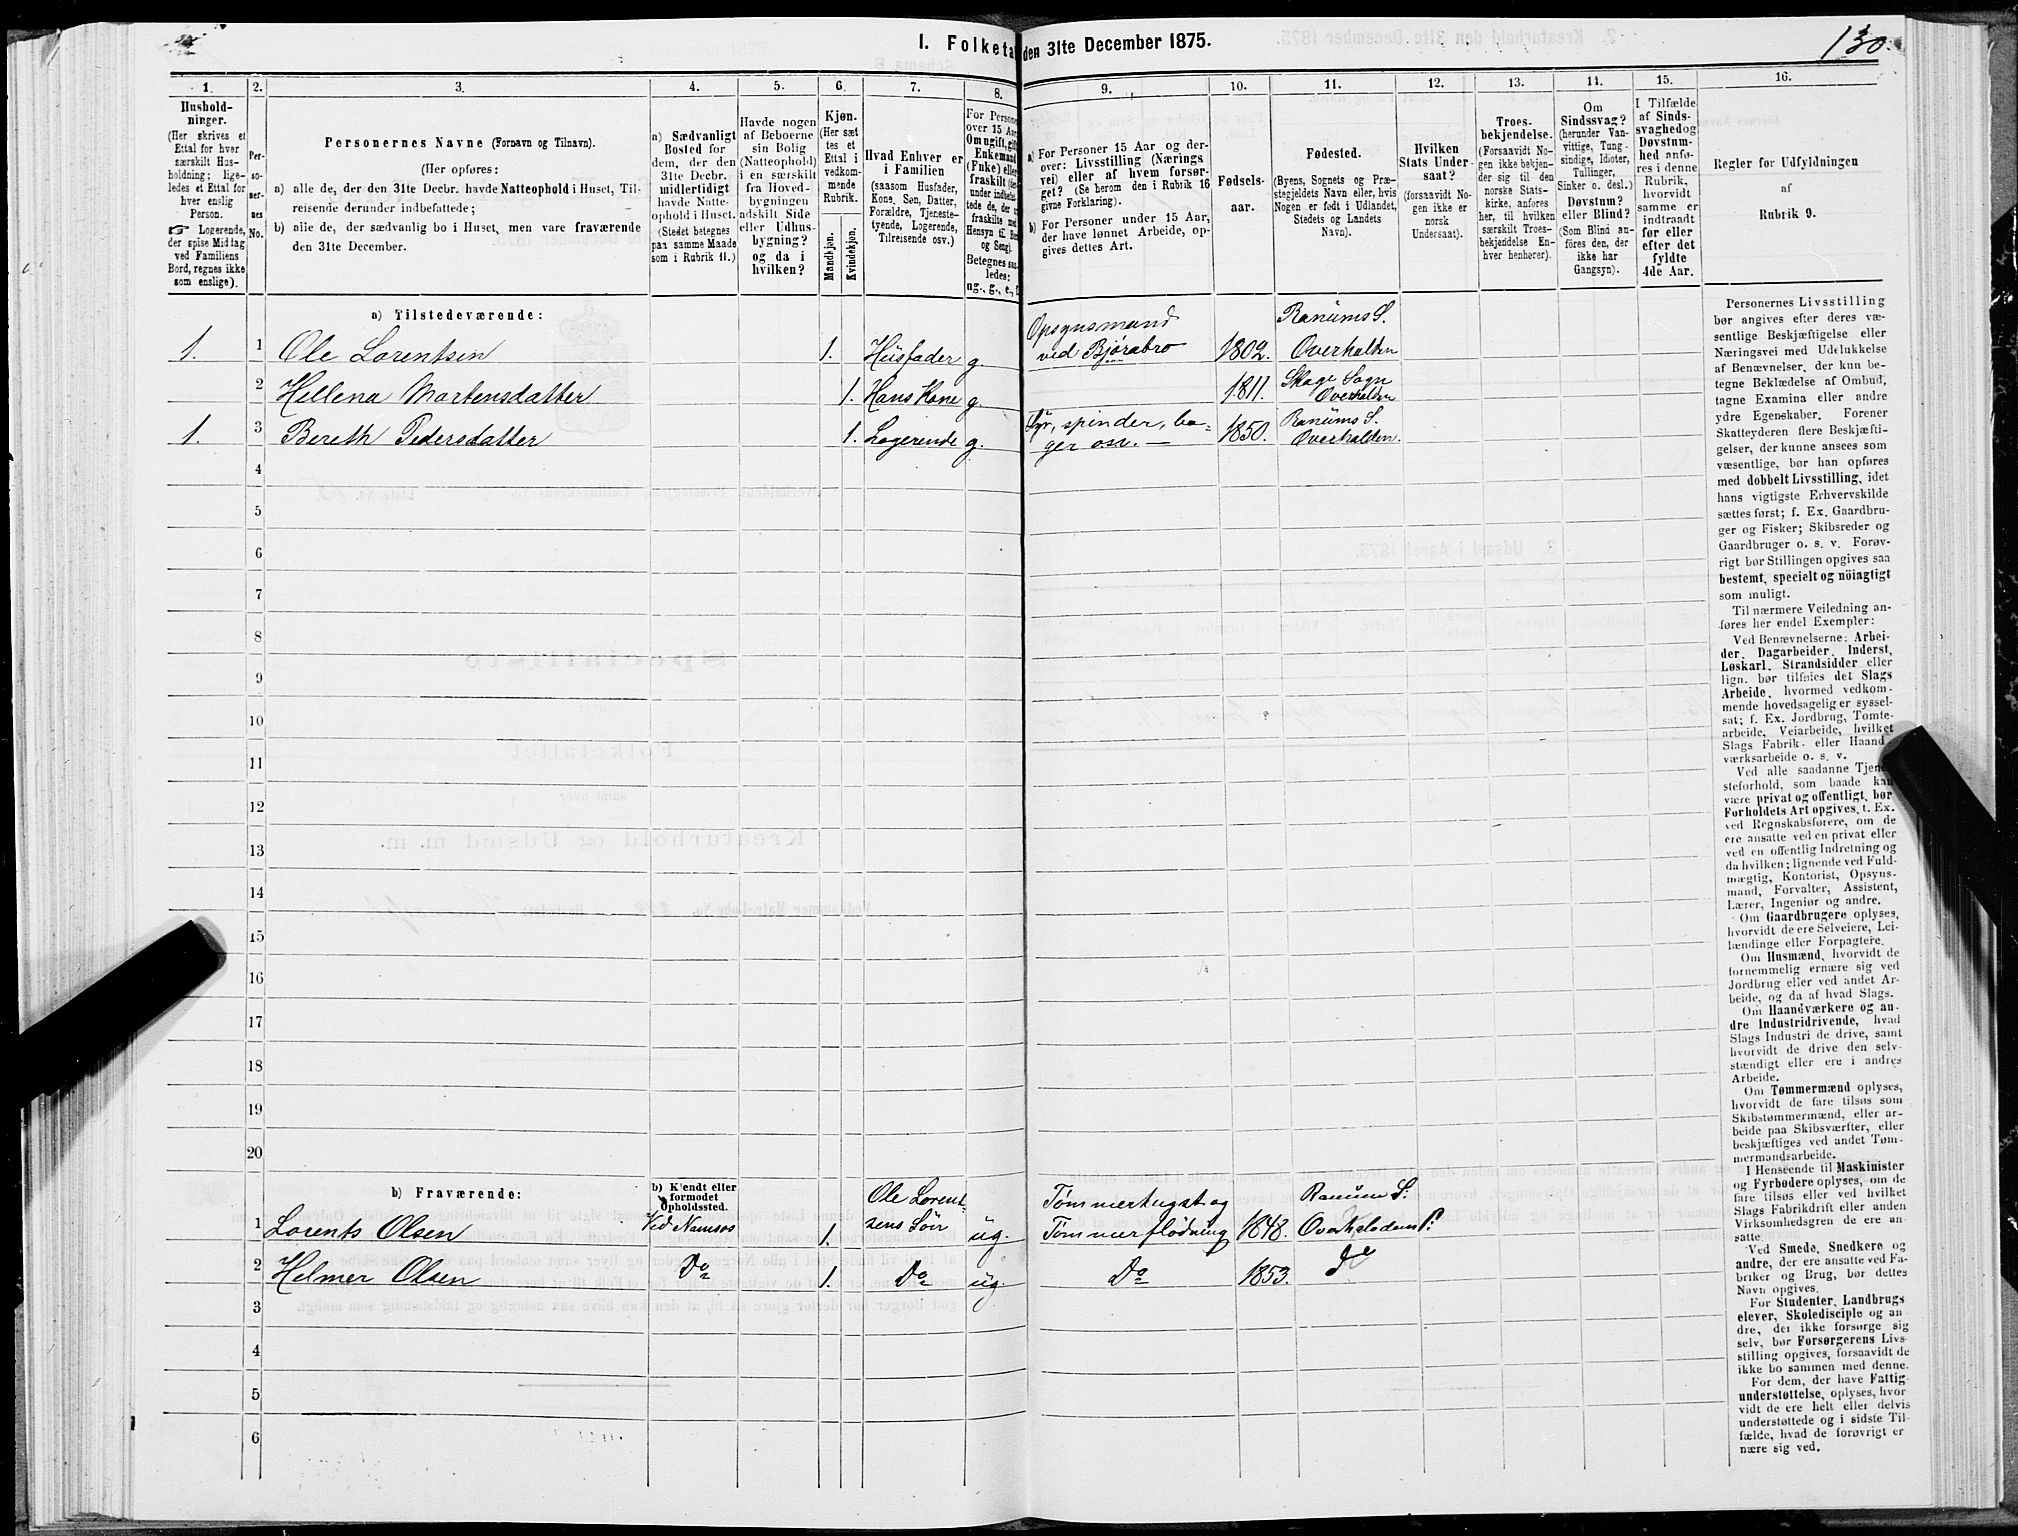 130.
I. Folketal den 31te December 1875.
1. 2. 3. 4. 5. 6. 7. 8. 9. 10. 11. 12. 13. 14. 15. 16.
Hushold-
ninger.
(Her skrives et
Ettal for hver
særskilt Hus-
holdning; lige-
ledes et Ettal for
hver enslig
Person.
Logerende,
der spise Middag
ved Familiens
Bord, regnes ikke
som enslige).
Per-
so-
ner-
nes
No.
Personernes Navne (Fornavn og Tilnavn).
(Her opføres:
a) alle de, der den 31te Decbr. havde Natteophold i Huset, Til-
reisende derunder indbefattede;
b) alle de, der sædvanlig bo i Huset, men vare fraværende
den 31te December.
a) Sædvanligt
Bosted for
dem, der den
31te Decbr.
midlertidigt
havde Natte-
ophold i Huset.
(Stedet betegnes
paa samme Maade
som i Rubrik 11.)
Havde nogen
af Beboerne
sin Bolig
(Natteophold)
i en særskilt
fra Hoved-
bygningen
adskilt Side
eller Udhus-
bygning?
og da i
hvilken?
Kjøn.
(Her sæt
tes et
Ettal i
vedkom-
mende
Rubrik.
Mandkjøn.
Kvindekjøn.
Hvad Enhver er
i Familien
(saasom Husfader,
Kone, Søn, Datter,
Forældre, Tjeneste-
tyende, Logerende,
Tilreisende osv.)
For Persone
over 15 Aar
Om ugift, gift
Enkemand
(Enke) eller
fraskilt
under indbefat-
tede de, der
fraskilte
Hensyn til Bor
og Seng).
Betegnes saa-
ledes:
ug., g., e.,
a) For Personer 15 Aar og der-
over: Livsstilling (Nærings
vei) eller af hvem forsør-
get? (Se herom den i Rubrik 16
givne Forklaring).
b) For Personer under 15 Aar,
der have lønnet Arbeide, op-
gives dettes Art.
Fødsels-
aar.
Fødested.
(Byens, Sognets og Præ-
stegjeldets Navn eller, hvis
Nogen er født i Udlandet,
Stedets og Landets
Navn).
Hvilken
Stats Under-
saat?
(forsaavidt No-
gen ikke er
norsk
Undersaat).
Troes-
bekjendelse.
(Forsaavidt No-
gen ikke bekjen-
der sig til den
norske Stats-
kirke, anføres
her, til hvilken
særskilt Troes-
bekjendelse En-
hver henhører).
Om
Sindssvag?
(herunder Van-
vittige, Tung-
sindige, Idioter,
Tullinger,
Sinker o. desl.)
Døvstum?
eller Blind?
(Som Blind an-
føres den, der
ikke har
Gangsyn).
I Tilfælde
af Sinds-
svaghed og
Døvstum-
hed anfø-
res i denne
Rubrik,
hvorvidt
samme er
indtraadt
før eller
efter det
fyldte
4de Aar.
Regler før Udfyldningen
af
Rubrik 9.
a) Tilstedeværende:
Opsynsmand Ranums S.
1. 1 Ole Lorentsen 1. Husfader g. ved Bjørabro 1802. Overhalden
2 Hellena Mortensdatter 1. Hans Kone g. 1811. Skage Sogn
Overhalden
1. 3 Bereth Pedersdatter 1. Logerende g. Syr, spinder, ba- 1850. Ranums S.
ger osv. — Overhalden.
4
5
6
7
8
9
10
11
12
13
14
15
16
17
18
19
20
b) Fraværende:
b) Kjendt eller
formodet
Opholdssted.
Ole Lorent Tømmerhugst og Ranum S:
1 Lorents Olsen Ved Namsos 1. sens Søn ug. Tømmerflødning 1848. Overhaldens P:
2 Helmer Olsen Do 1. Do ug. Do 1853. do
3
4
5
6
Personernes Livsstilling
bør angives efter deres væ-
sentlige Beskjæftigelse eller
Næringsvei med Udelukkelse
af Benævnelser, der kun be-
tegne Beklædelse af Ombud,
tagne Examina eller andre
ydre Egenskaber. Forener
Skatteyderen flere Beskjæfti-
gelser, der kunne ansees som
væsentlige, bør han opføres
med dobbelt Livsstilling, idet
hans vigtigste Erhvervskilde
sættes først; f. Ex. Gaardbru-
ger og Fisker; Skibsreder og
Gaardbruger o. s. v. Forøv-
rigt bør Stillingen opgives saa
bestemt, specielt og nöiagtigt
som muligt.
Til nærmere Veiledning an-
føres her endel Exempler:
Ved Benævnelserne: Arbei-
der, Dagarbeider, Inderst,
Løskarl, Strandsidder eller
lign. bør tilføies det Slags
Arbeide, hvormed vedkom-
mende hovedsagelig er syssel-
sat; f. Ex. Jordbrug, Tomte-
arbeide, Veiarbeide, hvilket
Slags Fabrik- eller Haand-
værksarbeide o. s. v.
Ved alle saadanne Tjene-
steforhold, som baade kan
være privat og offentligt, bør
Forholdets Art opgives, t. Ex.
ved Regnskabsførere, om de
ere ansatte ved en privat eller
ved en offentlig Indretning og
da hvilken; lignende ved Fuld-
mægtig, Kontorist, Opsyns-
mand, Forvalter, Assistent,
Lærer, Ingeniør og andre.
Om Gaardbrugere oplyses,
hvorvidt de ere Selveiere, Lei-
lændinge eller Forpagtere.
Om Husmænd, hvorvidt de
fornemmelig ernære sig ved
Jordbrug eller ved andet Ar-
beide, og da af hvad Slags.
Om Haandværkere og an-
dre Industridrivende, hvad
Slags Industri de drive, samt
hvorvidt de drive den selv-
stændigt eller ere i andres
Arbeide.
Om Tømmermænd oplyses,
hvorvidt de fare tilsøs som
Skibstømmermænd, eller ar-
beide paa Skibsværfter, eller
beskjæftiges ved andet Tøm-
mermandsarbeide.
I Henseende til Maskinister
og Fyrbødere oplyses, om de
fare tilsøs eller ved hvilket
Slags Fabrikdrift eller anden
Virksomhedsgren de ere an-
satte
Ved Smede, Snedkere og
andre, der ere ansatte ved Fa-
briker og Brug, bør dettes
Navn opgives.
For Studenter, Landbrugs
elever, Skoledisciple og an-
dre, der ikke forsørge sig
selv, bør Forsørgerens Livs-
stilling opgives, forsaavidt de
ikke bo sammen med denne.
For dem, der have Fattig-
understøttelse, oplyses, hvor
vidt de ere helt eller delvis
understøttede og i sidste Til-
fælde, hvad de forøvrigt er
nære sig ved.